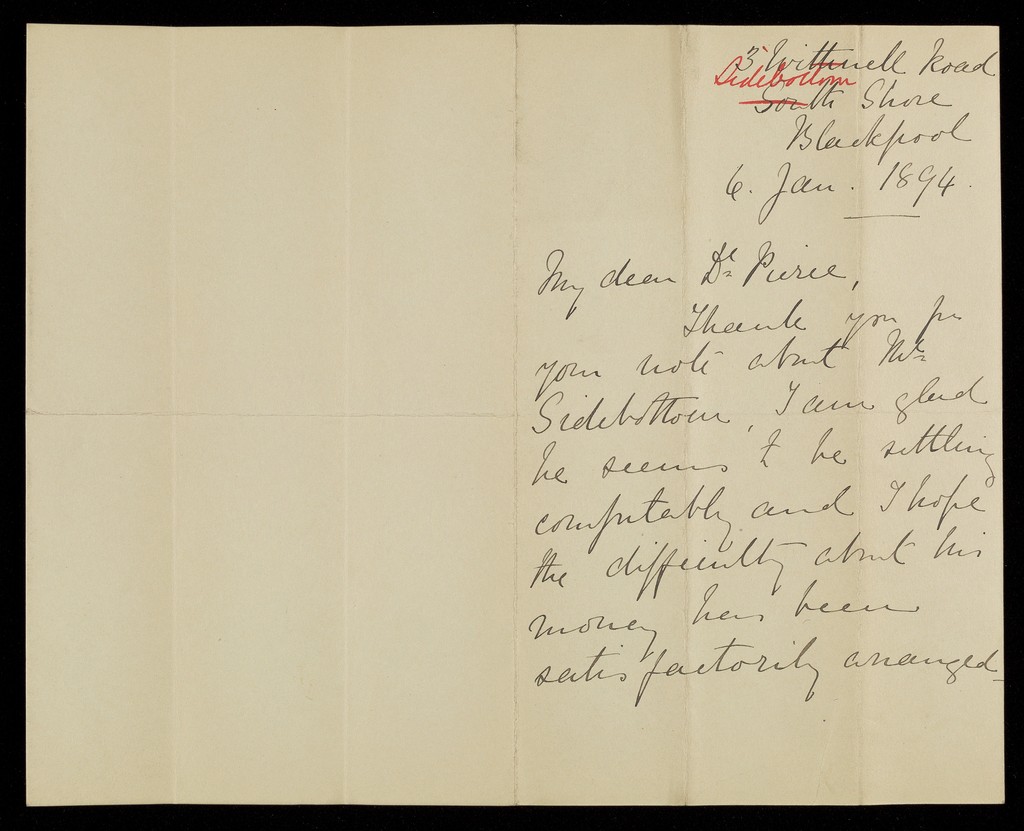 3 Withnell Road
Sidebottom
South Shore
Blackpool
6. Jan. 1894.
My dear Dr Pierce,
Thank you for
your note about Mr
Sidebottom, I am glad
he seems to be settling
comfortably and I hope
the difficulty about his
money has been
satisfactorily arranged_